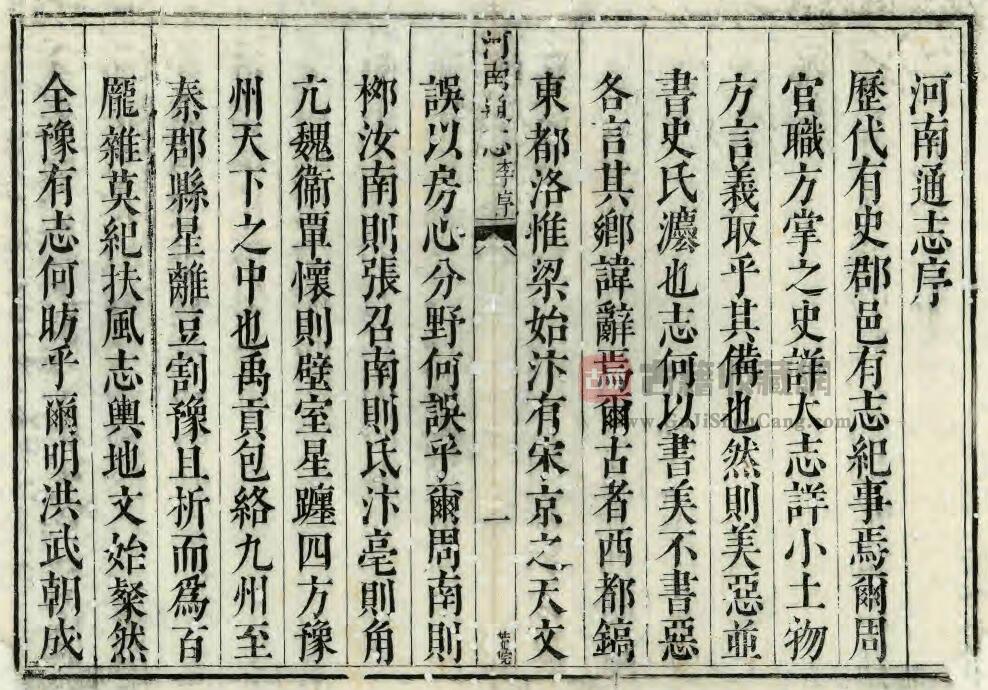 河南通志序
歷代有史郡邑有志紀事焉爾周
官職方掌之史詳大志詳小土物
方言義取乎其備也然則美惡並
書史氏灋也志何以書美不書惡
各言其鄉諱辭焉爾古者西都鎬
東都洛惟梁始汴有宋京之天文
河南通志 李序 一
誤以房心分野何誤乎爾周南則
栁汝南則張召南則氐汴亳則角
亢魏衞覃懷則壁室星躔四方豫
州天下之中也禹貢包絡九州至
秦郡縣星離豆割豫且折而爲百
龎雜莫紀扶風志輿地文始粲然
全豫有志何昉乎爾明洪武朝成